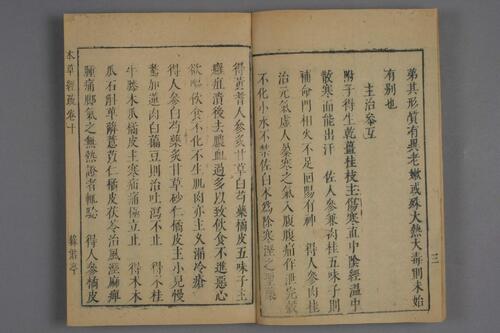 弟其形質有異老嫩或殊大熱大毒則未始
有別也
主治參互
附子得生乾薑桂枝主傷寒直中陰經溫中
散寒而能出汗 佐人參兼肉桂五味子則
補命門相火不足回陽有神 得人參肉桂
治元氣虛人暴寒之氣入腹腹痛作泄完穀
不化小水不禁佐白朮為除寒溼之聖藥
三
得黃耆人參炙甘草白芍藥橘皮五味子主
癰疽潰後去膿血過多以致飲食不進惡心
欲嘔飲食不化不生肌肉亦主久漏冷瘡
得人參白芍藥炙甘草砂仁橘皮主小兒慢
驚加蓮肉白扁豆則治吐瀉不止 得木
牛膝木瓜橘皮主寒痛諸痛極立止 得木
瓜石斛萆薢薏苡仁橘皮茯苓治風溼麻痺
腫痛腳氣之無熱證者輒驗 得人參橘皮
本草經疏卷十
綠君亭